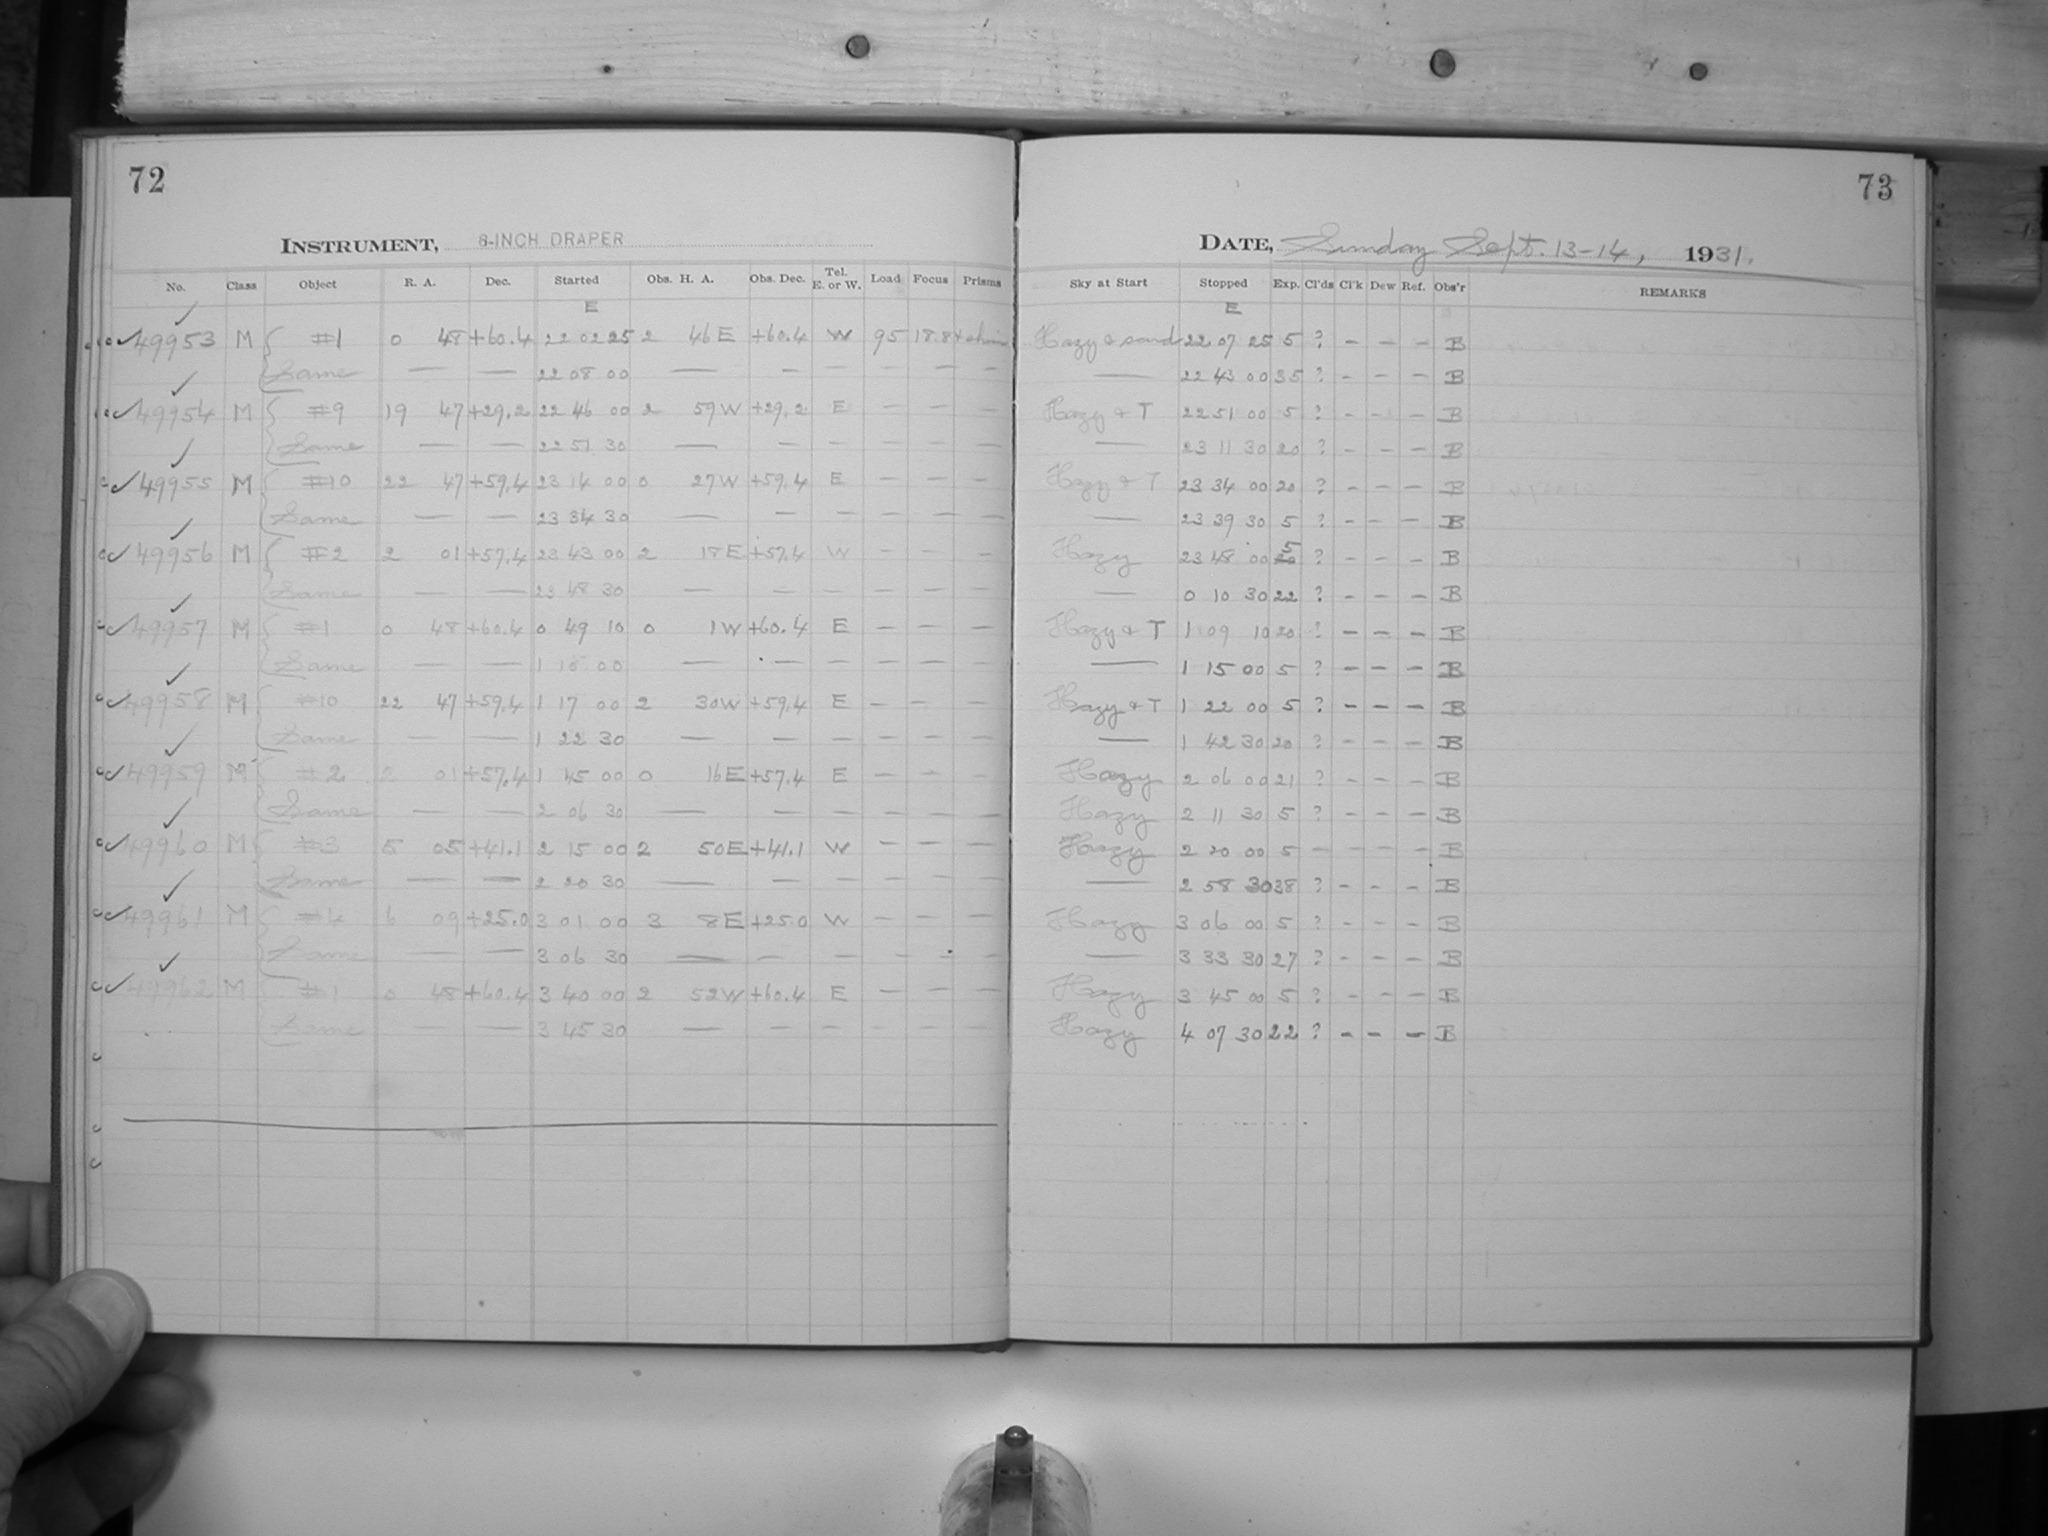 72
INSTRUMENT, 8-INCH DRAPER
No. Class Object R. A. Dec. Started Obs. H. A. Obs. Dec. Tel. E. or W. Load Focus Prisms
E
49953 M #1 0 48 +60.4 22 02 25 2 46 E +60.4 W 95 18.8
Same — — 22 08 00 — — — — — —
49954 M #9 19 47 +29.2 22 46 00 2 59 W +29.2 E — — —
Same — — 22 51 30 — — — — — —
49955 M #10 22 47 +59.4 23 14 00 0 27 W +59.4 E — — —
Same — — 23 34 30 — — — — — —
49956 M #2 2 01 +57.4 23 43 00 2 18 E +57.4 W — — —
Same — — 23 48 30 — — — — — —
49957 M #1 0 48 +60.4 0 49 10 0 1 W +60.4 E — — —
Same — — 1 10 00 — — — — — —
49958 M #10 22 47 +59.4 1 17 00 2 30 W +59.4 E — — —
Same — — 1 22 30 — — — — — —
49959 M #2 2 01 +57.4 1 45 00 0 16 E +57.4 E — — —
Same — — 2 06 30 — — — — — —
49960 M #3 5 05 +41.1 2 15 00 2 50 E +41.1 W — — —
Same — — 2 20 30 — — — — — —
49961 M #4 6 09 +25.0 3 01 00 3 8 E +25.0 W — — —
Same — — 3 06 30 — — — — — —
49962 M #1 0 48 +60.4 3 40 00 2 52 W +60.4 E — — —
Same — 3 45 30 — — — — — —
73
DATE, Sunday Sept. 13-14, 1931.
Sky at Start Stopped Exp. Cl'ds Cl'k Dew Ref. Obs'r REMARKS
E
Hazy & sand 22 07 25 5 ? — — — B
— 22 43 00 35 ? — — — B
Hazy & T 22 51 00 5 ? — — — B
— 23 11 30 20 ? — — — B
Hazy & T 23 34 00 20 ? — — — B
— 23 39 30 5 ? — — — B
Hazy 23 48 00 5 ? — — — B
— 0 10 30 22 ? — — — B
Hazy & T 1 09 10 20 ? — — — B
— 1 15 00 5 ? — — — B
Hazy & T 1 22 00 5 ? — — — B
— 1 42 30 20 ? — — — B
Hazy 2 06 00 21 ? — — — B
Hazy 2 11 30 5 ? — — — B
Hazy 2 20 00 5 — — — — B
— 2 58 30 38 ? — — — B
Hazy 3 06 00 5 ? — — — B
— 3 33 30 27 ? — — — B
Hazy 3 45 00 5 ? — — — B
Hazy 4 07 30 22 ? — — — B